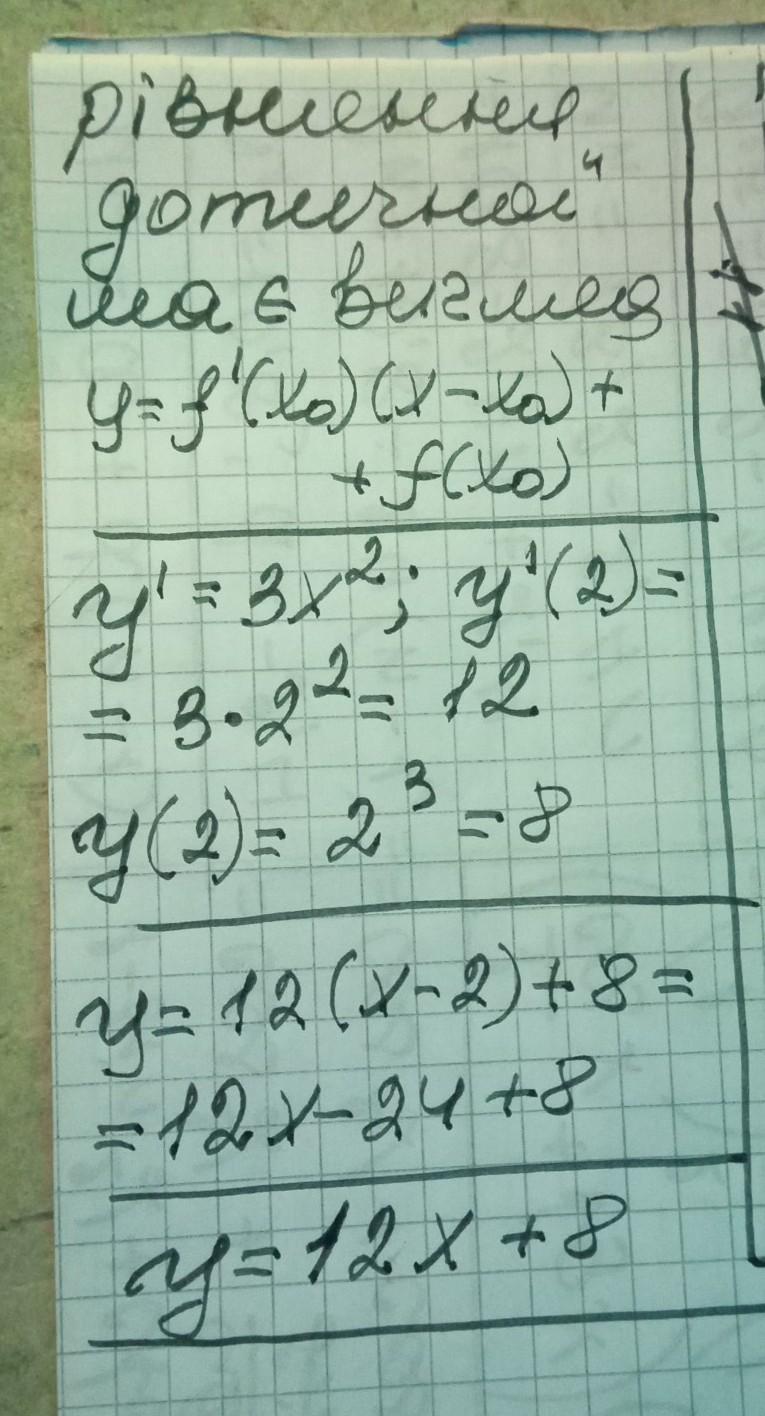 рівняння
дотичної
має вигляд
y = f'(x₀)(x - x₀) +
+ f(x₀)
y' = 3x²; y'(2) =
= 3·2² = 12
y(2) = 2³ = 8
y = 12(x - 2) + 8 =
= 12x - 24 + 8
y = 12x + 8